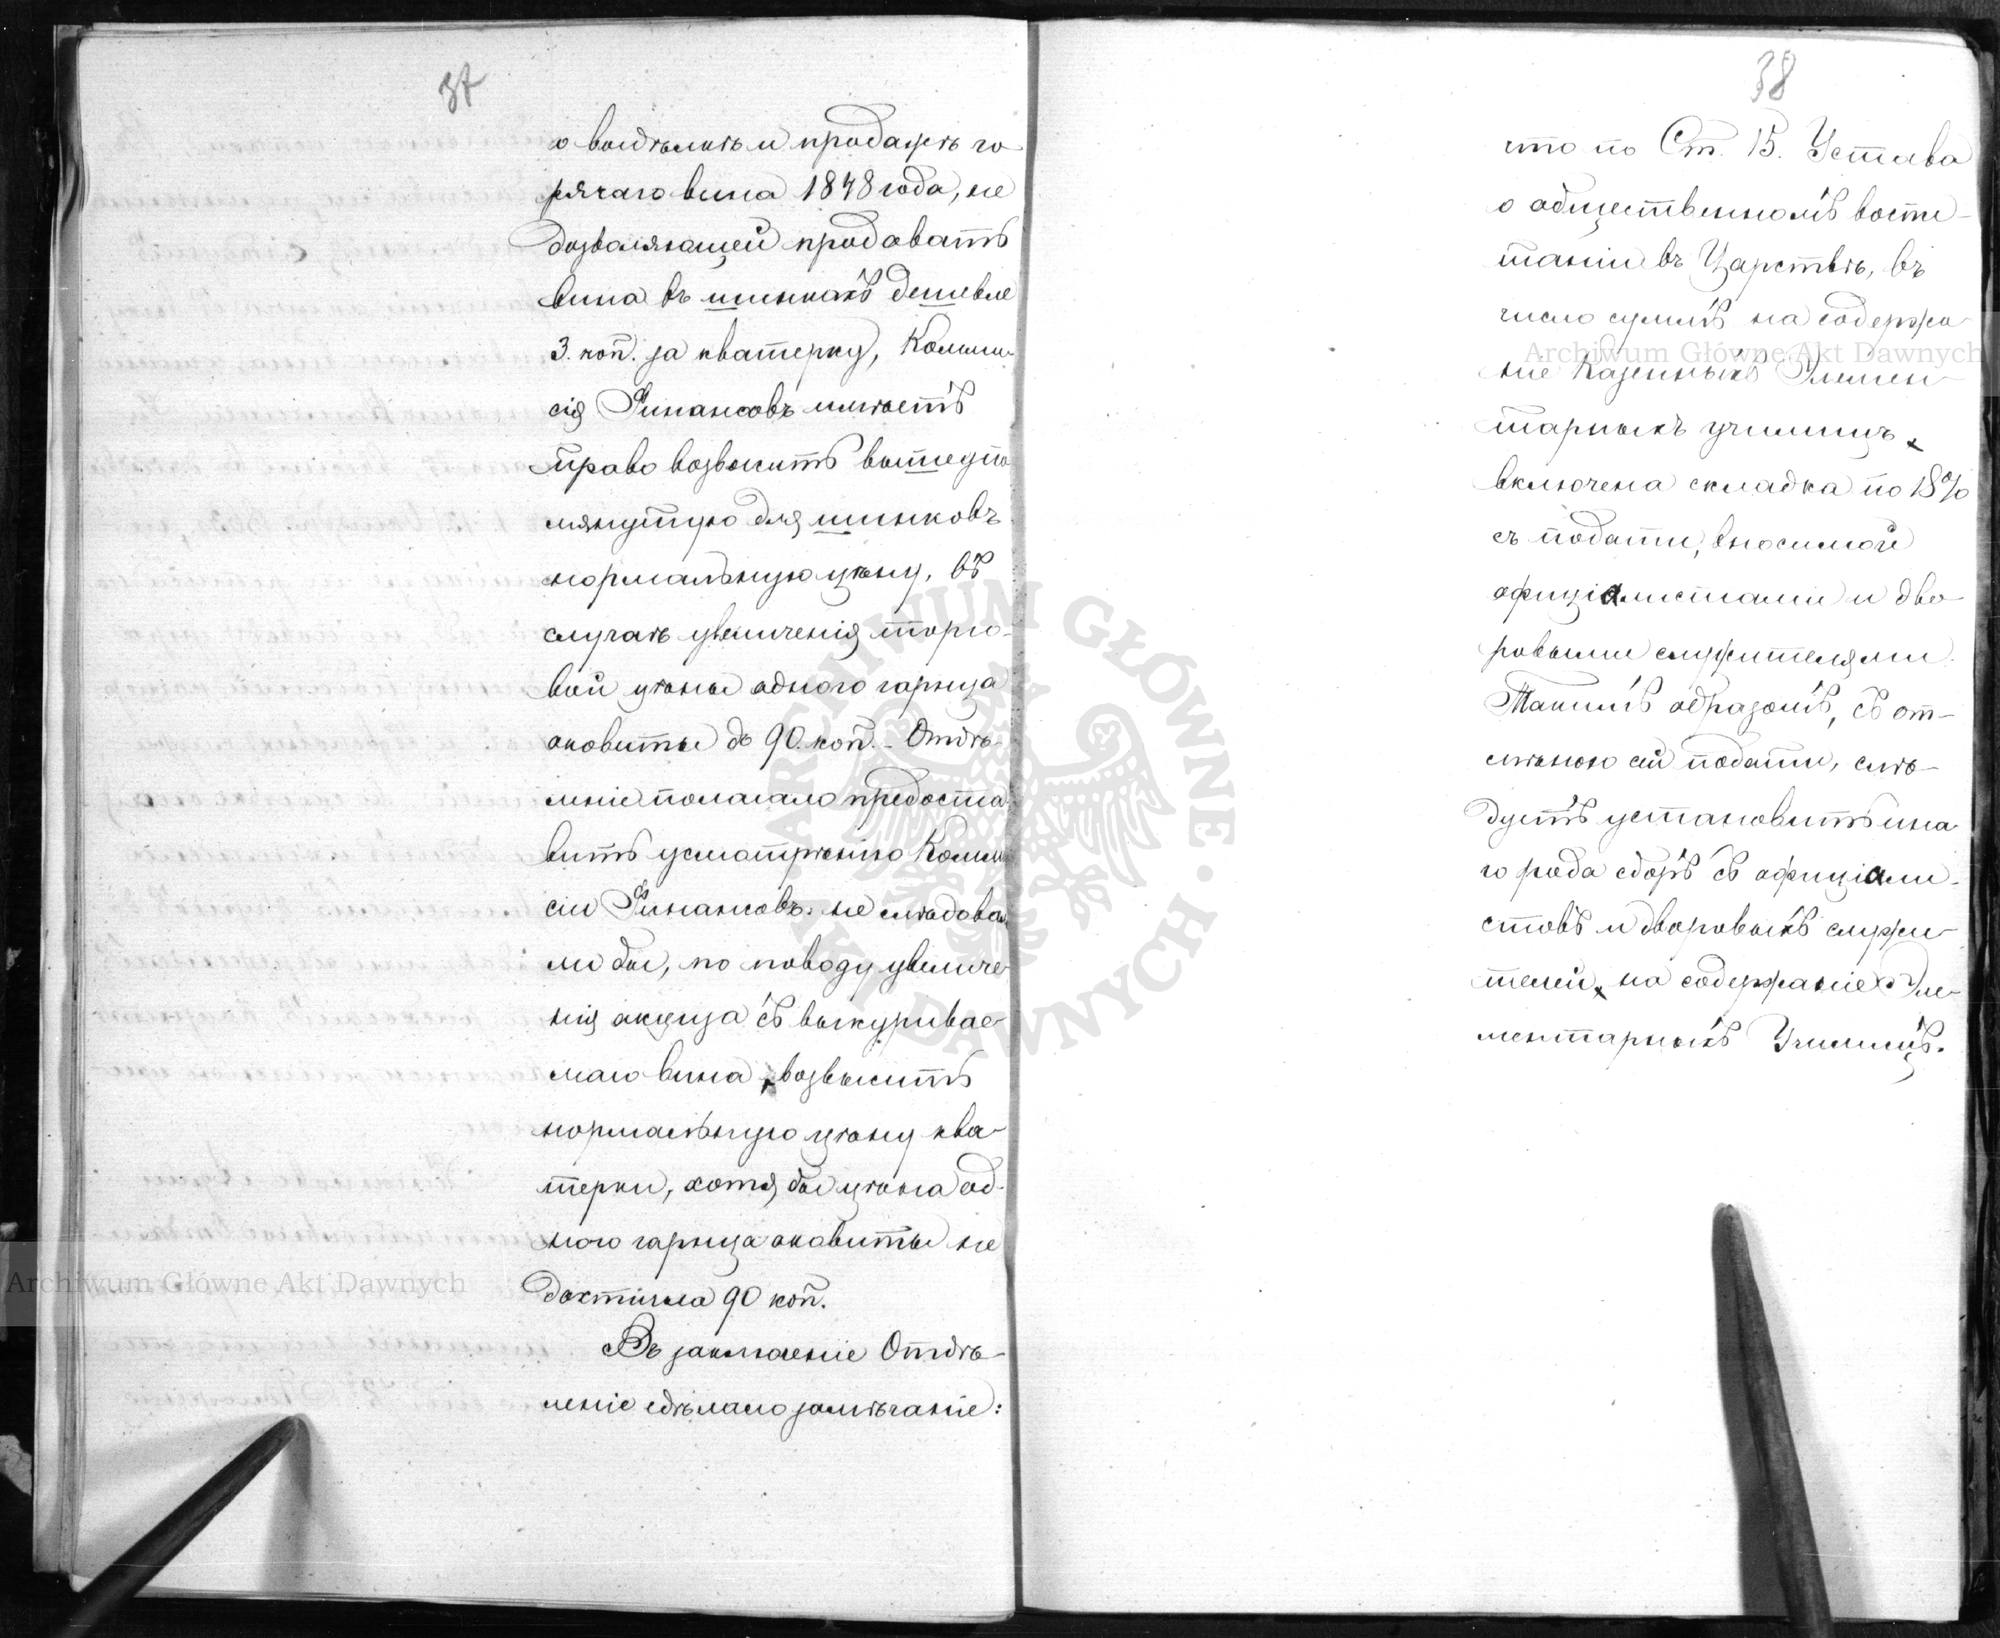 37
о выдѣлкѣ и продажѣ го-
рячаго вина 1848 года, не
дозволяющей продавать
вина въ шинкахъ дешевле
3. коп. за кватерку, Комми-
сія Финансовъ имѣетъ
право возвысить вышеупо-
мянутую для шинковъ
нормальную цѣну, въ
случаѣ увеличенія торго-
вой цѣны одного гарнца
оковиты до 90. коп. - Отдѣ-
леніе полагало предоста-
вить усмотрѣнію Комми-
сіи Финансовъ: не слѣдова-
ло бы, по поводу увеличе-
нія акциза съ выкуривае-
маго вина, возвысить
нормальную цѣну ква-
терки, хотя бы цѣна од-
ного гарнца оковиты не
достигла 90 коп.
Въ заключеніе Отдѣ-
леніе сдѣлало замѣчаніе:
38
что по Ст. 15. Устава
о общественномъ воспи-
таніи въ Царствѣ, въ
число суммъ на содержа-
ніе казенныхъ Элемен-
тарныхъ училищъ,
включена складка по 18%
съ подати, вносимой
офиціалистами и дво-
ровыми служителями.
Такимъ образомъ, съ от-
мѣною сей подати, слѣ-
дуетъ установить ина-
го рода сборъ съ офиціали-
стовъ и дворовыхъ служи-
телей, на содержаніе Эле-
ментарныхъ Училищъ.
Archiwum Główne Akt Dawnych
Archiwum Główne Akt Dawnych
ARCHIWUM GŁÓWNE · AKT DAWNYCH ·